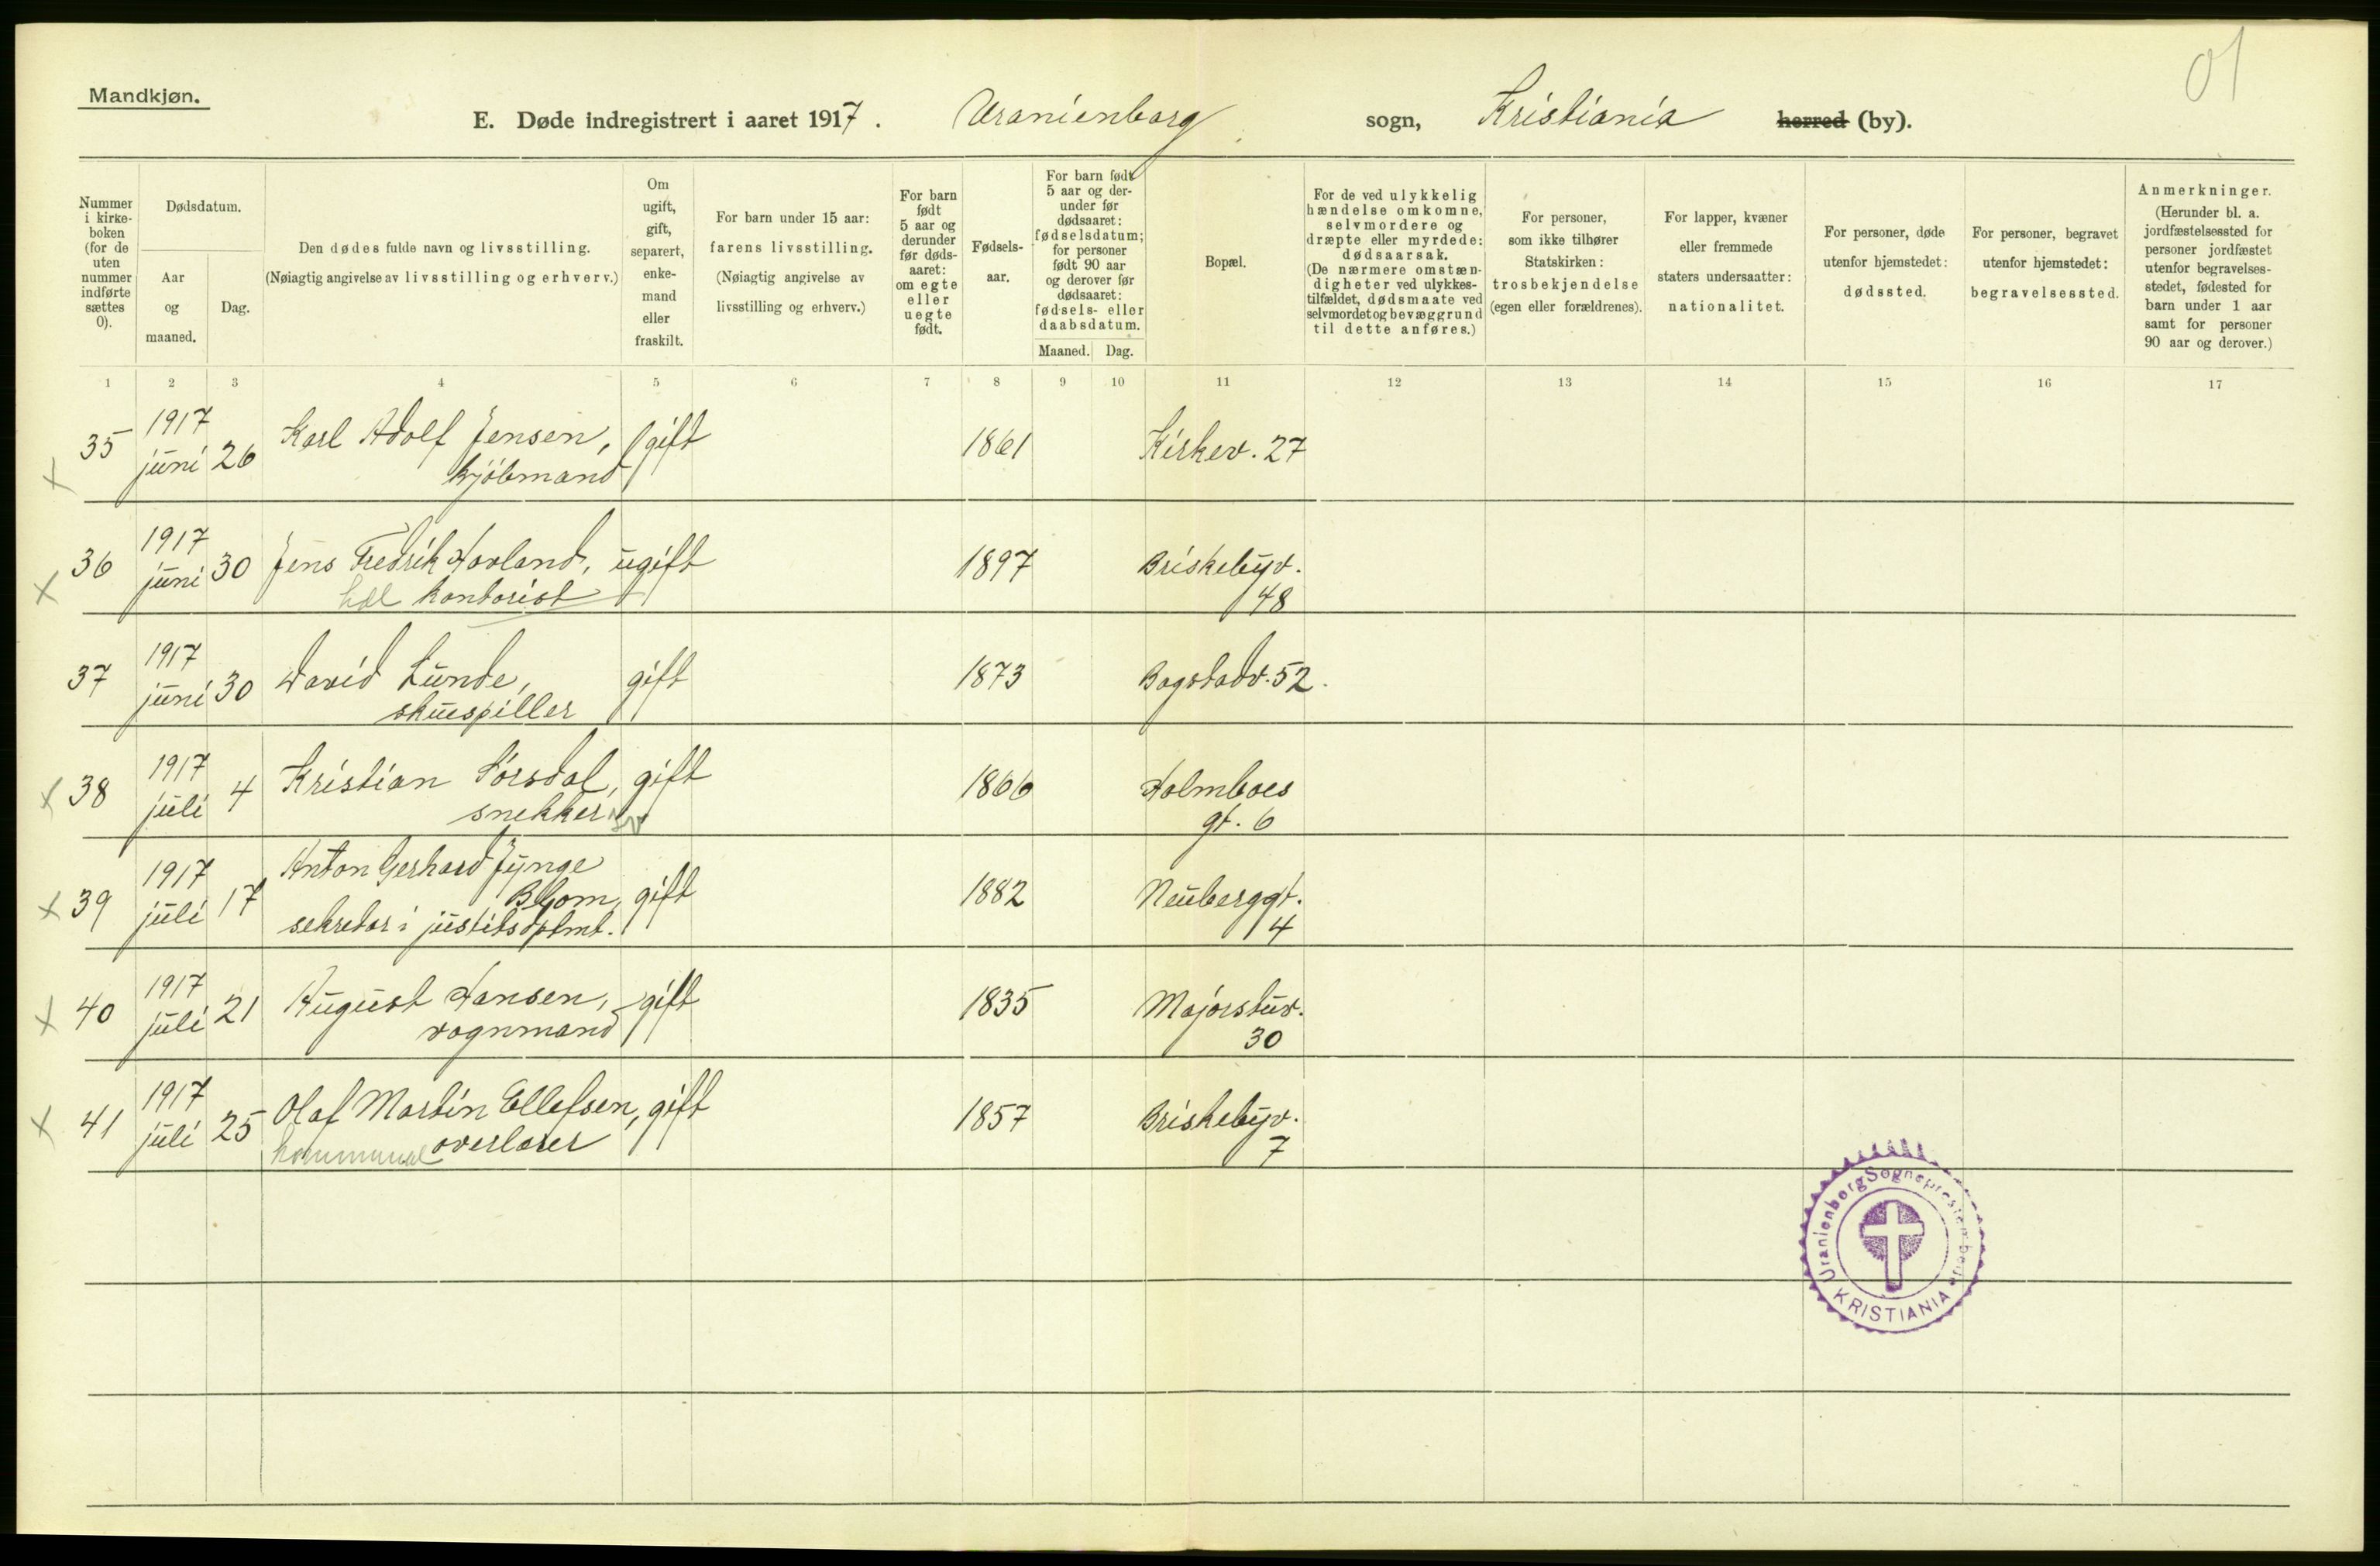 01
Mandkjøn.
E. Døde indregistrert i aaret 1917. Uranienborg sogn, Kristiania herred (by).
Nummer i kirke-boken (for de uten nummer indførte sættes 0).
Dødsdatum.
Aar og maaned.
Dag.
Den dødes fulde navn og livsstilling.
(Nøiagtig angivelse av livsstilling og erhverv.)
Om ugift, gift, separert, enke-mand eller fraskilt.
For barn under 15 aar:
farens livsstilling.
(Nøiagtig angivelse av
livsstilling og erhverv.)
For barn født 5 aar og derunder før døds-aaret: om egte eller uegte født.
Fødsels-aar.
For barn født 5 aar og der-under før dødsaaret: fødselsdatum; for personer født 90 aar og derover før dødsaaret: fødsels- eller daabsdatum.
Maaned. Dag.
Bopæl.
For de ved ulykkelig hændelse omkomne, selvmordere og dræpte eller myrdede: dødsaarsak. (De nærmere omstæn-digheter ved ulykkes-tilfældet, dødsmaate ved selvmordet og bevæggrund til dette anføres.)
For personer, som ikke tilhører Statskirken: trosbekjendelse (egen eller forældrenes).
For lapper, kvæner eller fremmede staters undersaatter: nationalitet.
For personer, døde utenfor hjemstedet: dødssted.
For personer, begravet utenfor hjemstedet: begravelsessted.
Anmerkninger.
(Herunder bl. a. jordfæstelsessted for personer jordfæstet utenfor begravelses-stedet, fødested for barn under 1 aar samt for personer 90 aar og derover.)
1 2 3 4 5 6 7 8 9 10 11 12 13 14 15 16 17
x 35 1917 juni 26 Karl Adolf Jensen, gift 1861 Kirkev. 27
kjöbmand
x 36 1917 juni 30 Jens Fredrik Havland, ugift 1897 Briskebyv. 48
hdl kontorist
37 1917 juni 30 David Lunde, gift 1873 Bogstadv. 52.
skuespiller
x 38 1917 juli 4 Kristian Sörsdal, gift 1866 Holmboes gt. 6
snekker
x 39 1917 juli 17 Anton Gerhard Jynge gift 1882 Neuberggt. 4
Blom,
sekretær i justitsdptmt.
x 40 1917 juli 21 August Hansen, gift 1835 Majorstuv. 30
vognmand
x 41 1917 juli 25 Olaf Martin Ellefsen, gift 1857 Briskebyv. 7
kommunal overlærer
Uranienborg Sogneprestembede
KRISTIANIA